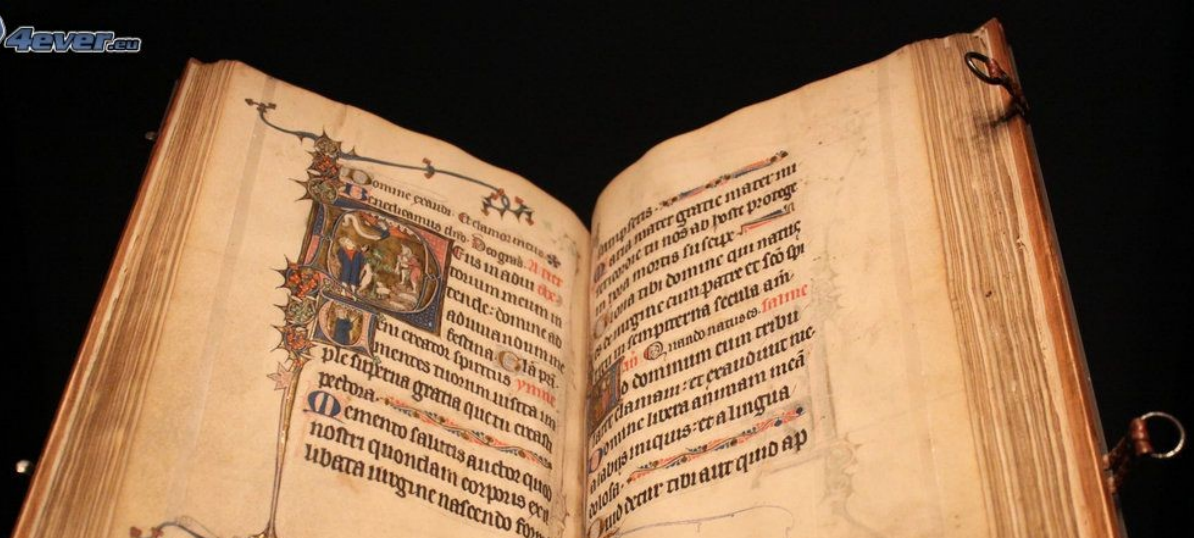 4ever.eu
Domine exaudi. Et clamor meus
Benedicamus dño. Deo grãs.
eus in adiu
torium meum in
tende: domine ad
adiuuandum me
festina. Glã pa
eni creator spiritus ymne
mentes tuorum uisita im
ple superna gratia que tu creasti
pectora.
Memento salutis auctor quod
nostri quondam corporis ex
ibata uirgine nascendo for
Maria mater gratie mater mi
sericordie tu nos ab hoste protege
in hora mortis suscipe.
Gloria tibi domine qui natus
es de uirgine cum patre et sc̃o sp̃i
in sempiterna secula am̃.
Quando natus es. salme
d dominum cum tribu
larer clamaui: et exaudiuit me.
Domine libera animam meã
a labijs iniquis: et a lingua
dolosa.
Quid detur tibi aut quid ap